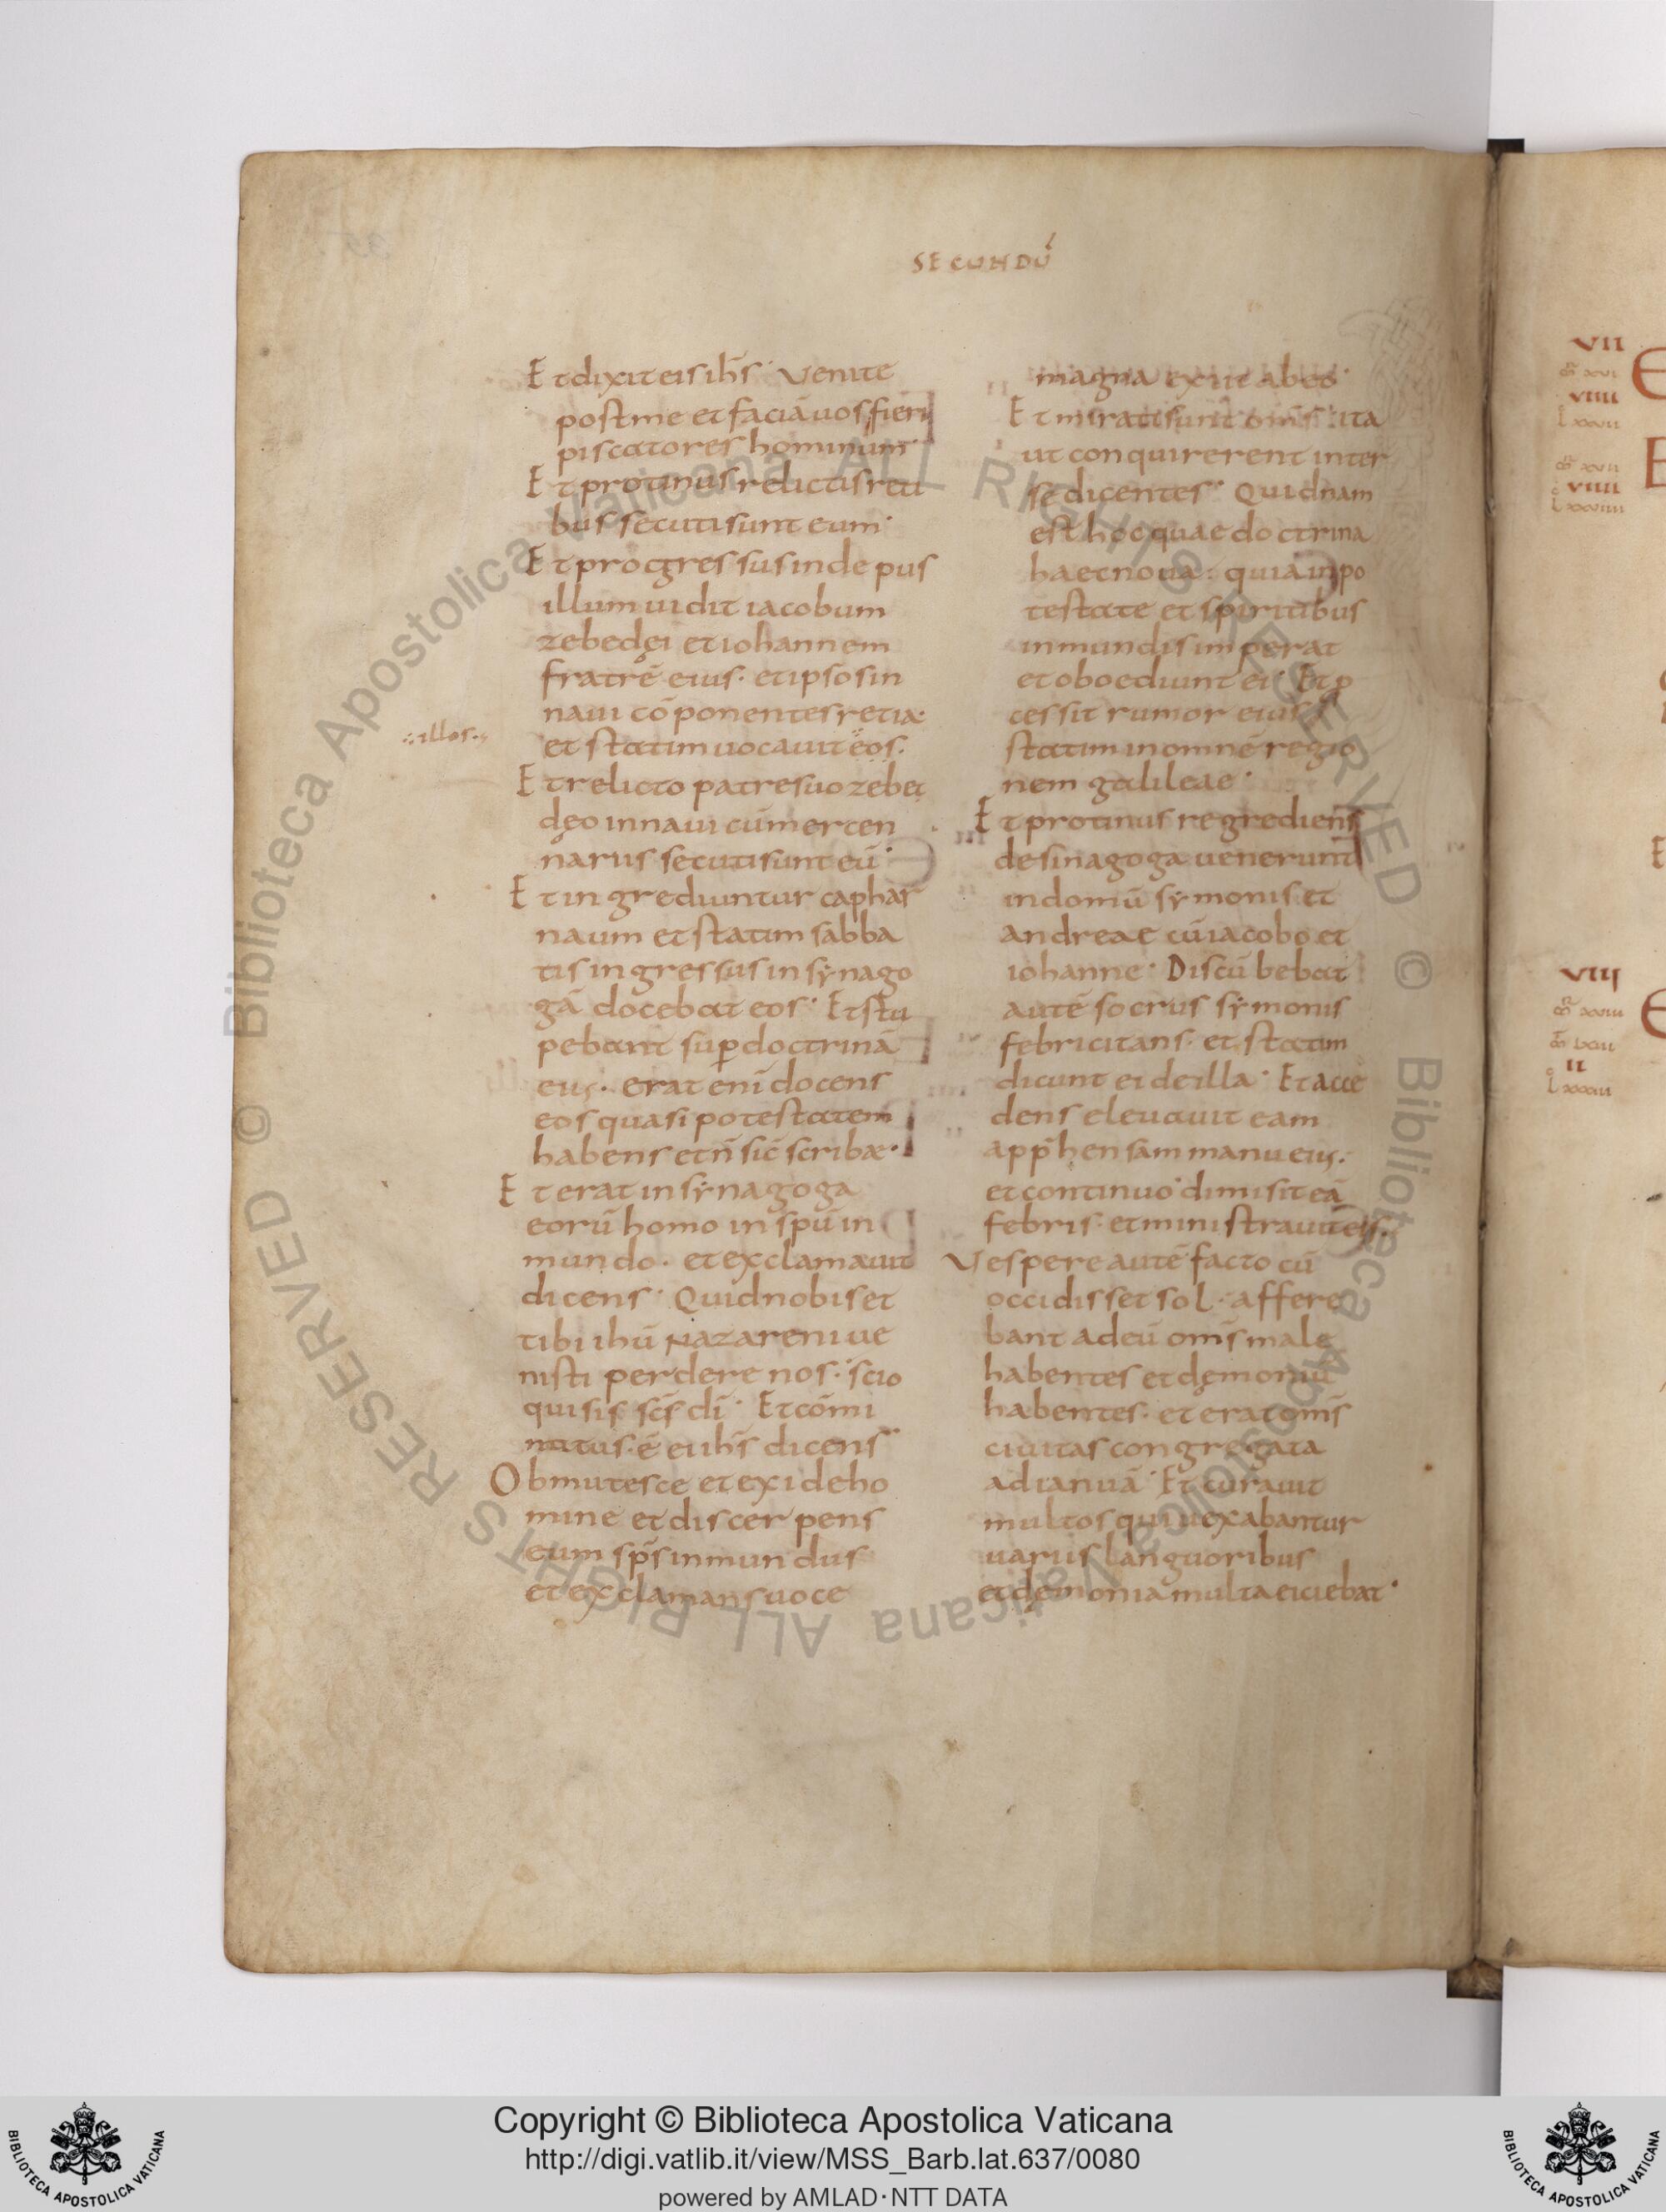 SECUNDŪ
Et dixit eis ihs̄· Venite
post me et faciā uos fieri
piscatores hominum·
Et protinus relictis reti
bus secuti sunt eum·
Et progressus inde pus
illum uidit iacobum
zebedęi et iohannem
fratrē eius· et ipsos in
naui cō ponentes retia·
et statim uocauit eos·
illos·
Et relicto patre suo zebe
dęo in naui cū mercen
nariis secuti sunt eū·
Et ingrediuntur caphar
naum et statim sabba
tis ingressus in synago
gā docebat eos· Et stu
pebant sup doctrinā
eius· erat enī docens
eos quasi potestatem
habens et n̄ sic̄ scribae·
Et erat in synagoga
eorū homo in spū in
mundo· et exclamauit
dicens· Quid nobis et
tibi ihū Nazarene ue
nisti perdere nos· scio
qui sis scs̄ dī· Et cōmi
natus· ē ei ihs̄ dicens·
Obmutesce et exi de ho
mine et discerpens
eum sps̄ inmundus
et exclamans uoce
magna exiit ab eo·
Et mirati sunt oms̄ ita
ut conquirerent inter
se dicentes· Quidnam
est hoc quae doctrina
haec noua· quia in po
testate et spiritibus
inmundis imperat
et oboediunt ei· Et p
cessit rumor eius
statim in omnē regio
nem galileae·
Et protinus regredien̄s
de sinagoga uenerunt
in domū symonis et
andreae cū iacobo et
iohanne· Discū bebat
autē socrus symonis
febricitans· et statim
dicunt ei de illa· Et acce
dens eleuauit eam
app̄hensam manu eius·
et continuo dimisit eā
febris· et ministrauit eis·
Vespere autē facto cū
occidisset sol· affere
bant ad eū oms̄ male
habentes et dęmoniū
habentes· et erat oms̄
ciuitas congregata
ad ianuā· Et curauit
multos qui uexabantur
uariis languoribus
et dęmonia multa eiciebat·
VII
VIIII
VIIII
VIII
II
© Biblioteca Apostolica Vaticana ALL RIGHTS RESERVED © Biblioteca Apostolica Vaticana ALL RIGHTS RESERVED
BIBLIOTECA APOSTOLICA VATICANA
Copyright © Biblioteca Apostolica Vaticana
http://digi.vatlib.it/view/MSS_Barb.lat.637/0080
powered by AMLAD·NTT DATA
BIBLIOTECA APOSTOLICA VATICANA